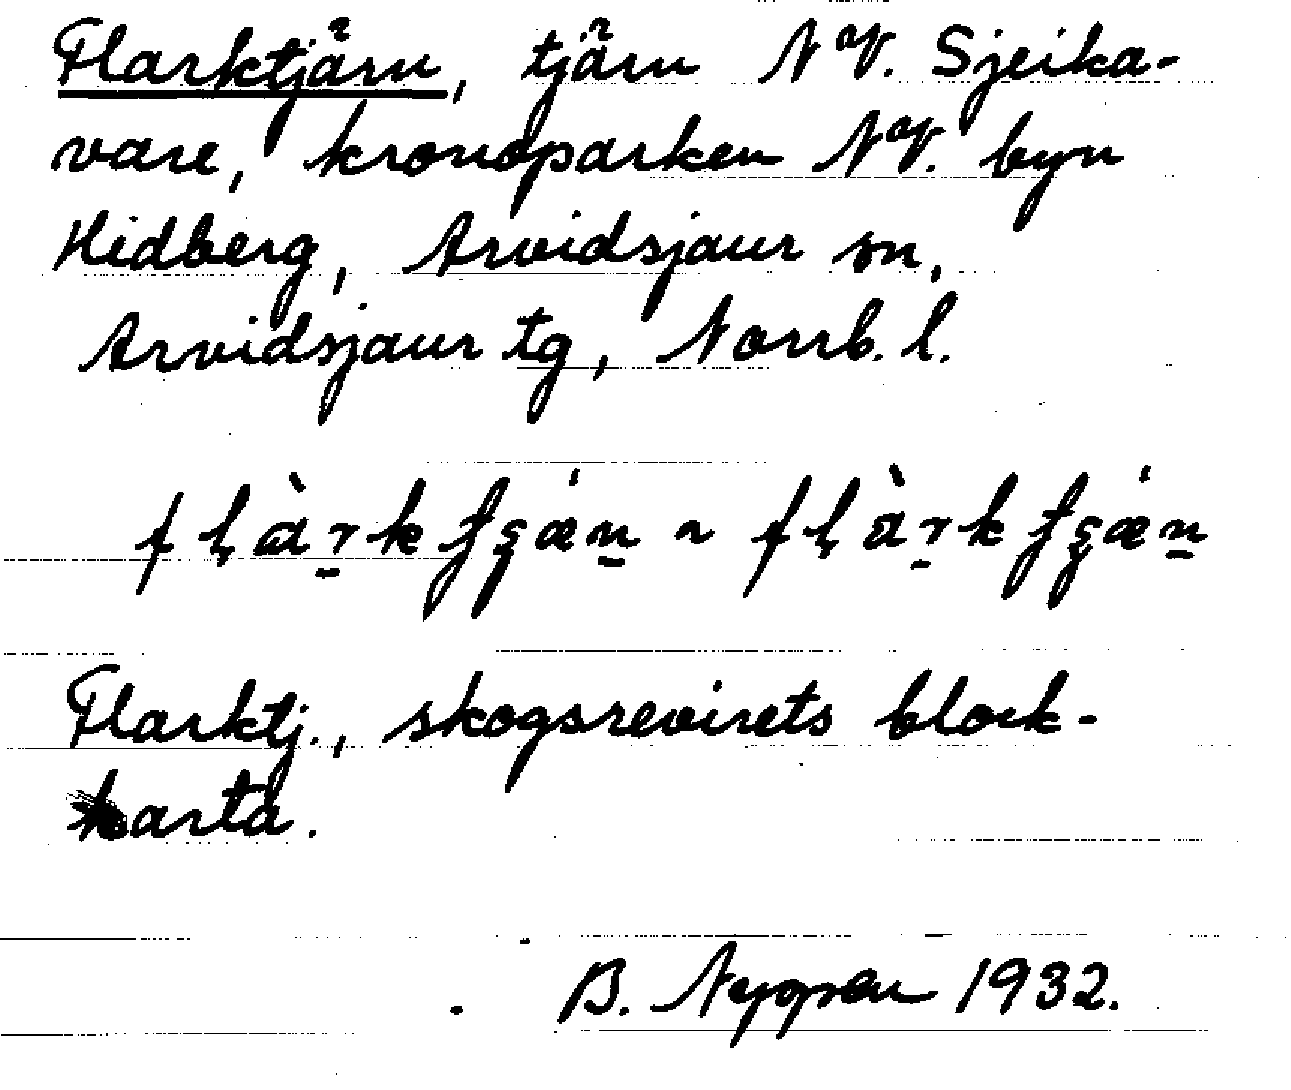 Flarktjärn, tjärn N av. Sjeika-
vare, kronoparken N av. byn
Hidberg, Arvidsjaur sn,
Arvidsjaur tg, Norrb. l.
Flarktj., skogsrevirets block-
karta.
B. 1932.